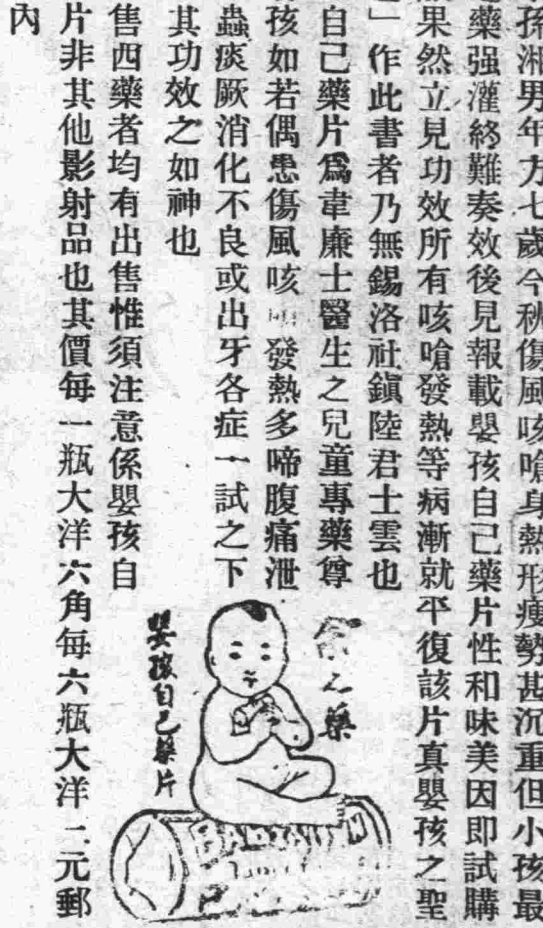 孫湘男年方七歲今秋傷風咳嗆身熱形瘦勢甚沉重但小孩最
藥强灌終難奏效後見報載嬰孩自己藥片性和味美因即試購
果然立見功效所有咳嗆發熱等病漸就平復該片真嬰孩之聖
」作此書者乃無錫洛社鎮陸君士雲也
自己藥片爲韋廉士醫生之兒童專藥尊
孩如若偶患傷風咳嗆發熱多啼腹痛泄
蟲痰厥消化不良或出牙各症一試之下
其功效之如神也
售西藥者均有出售惟須注意係嬰孩自
片非其他影射品也其價每一瓶大洋六角每六瓶大洋二元郵
內
之藥
嬰孩自己藥片